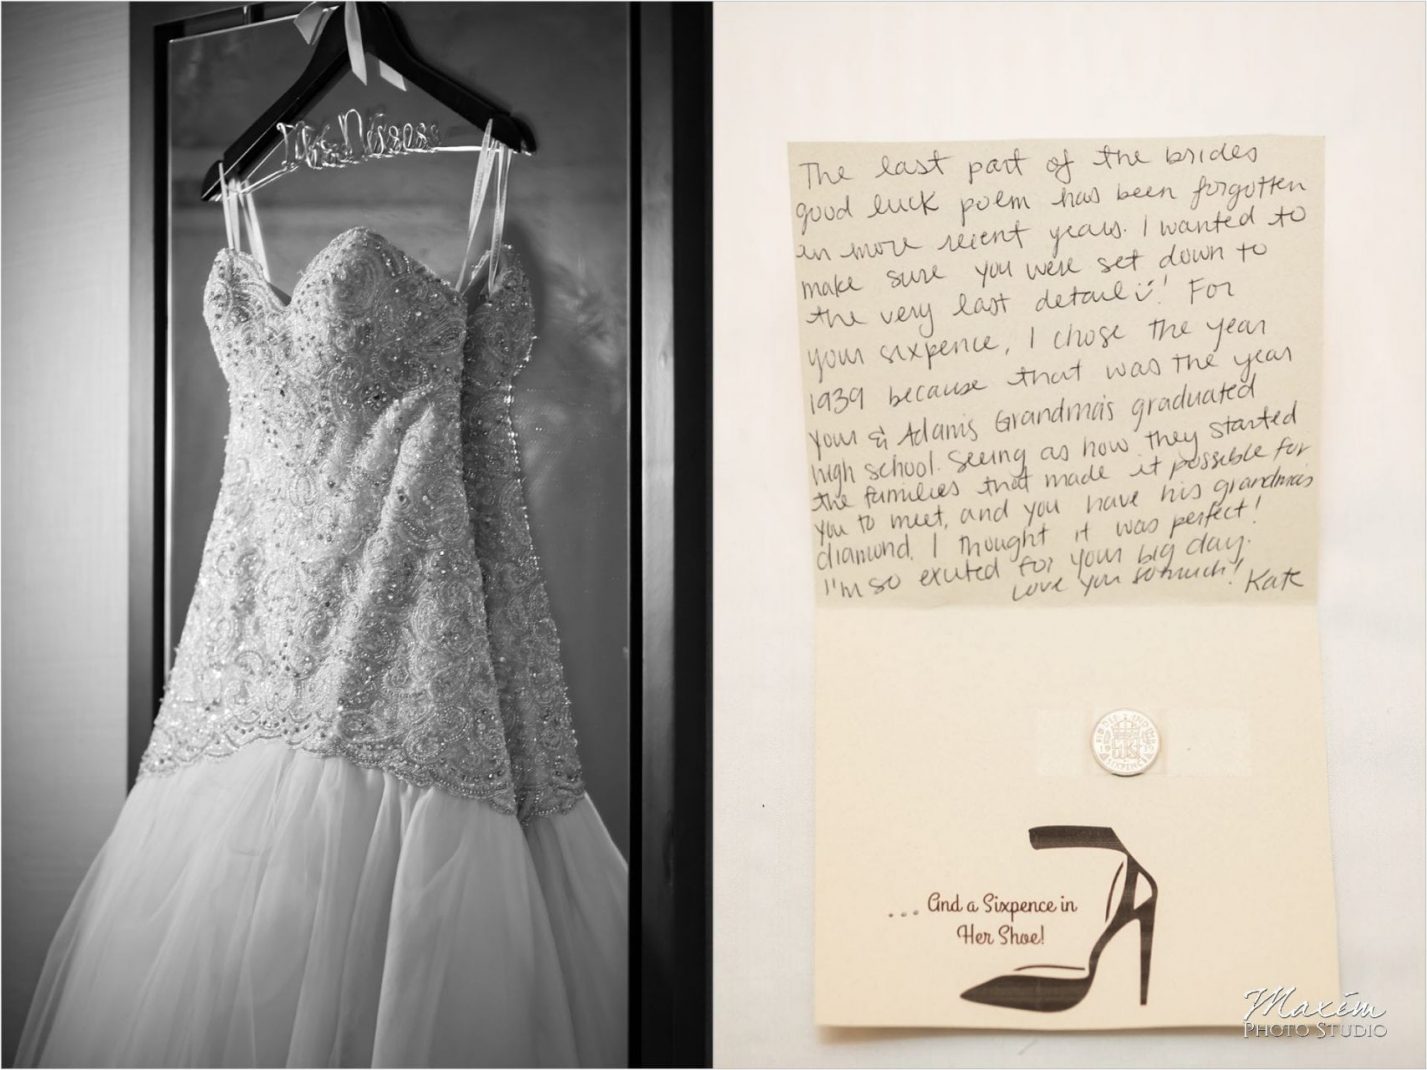 Mrs. Nissoss
The last part of the brides
good luck poem has been forgotten
in more recent years. I wanted to
make sure you were set down to
the very last detail! For
your sixpence, I chose the year
1939 because that was the year
your & Adam's Grandma's graduated
high school. Seeing as how they started
the families that made it possible for
you to meet, and you have his grandmas
diamond, I thought it was perfect!
I'm so excited for your big day.
Love you so much! Kate
SIXPENCE
... And a Sixpence in
Her Shoe!
Maxim
PHOTO STUDIO